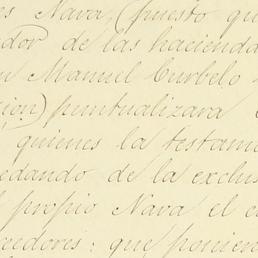 es Nava, (puesto qu
edor de las hacienda
n Manuel Curbelo
cion) puntualizara
quienes la testam
edando de la exclus
l propio Nava el c
reedores: que ponien